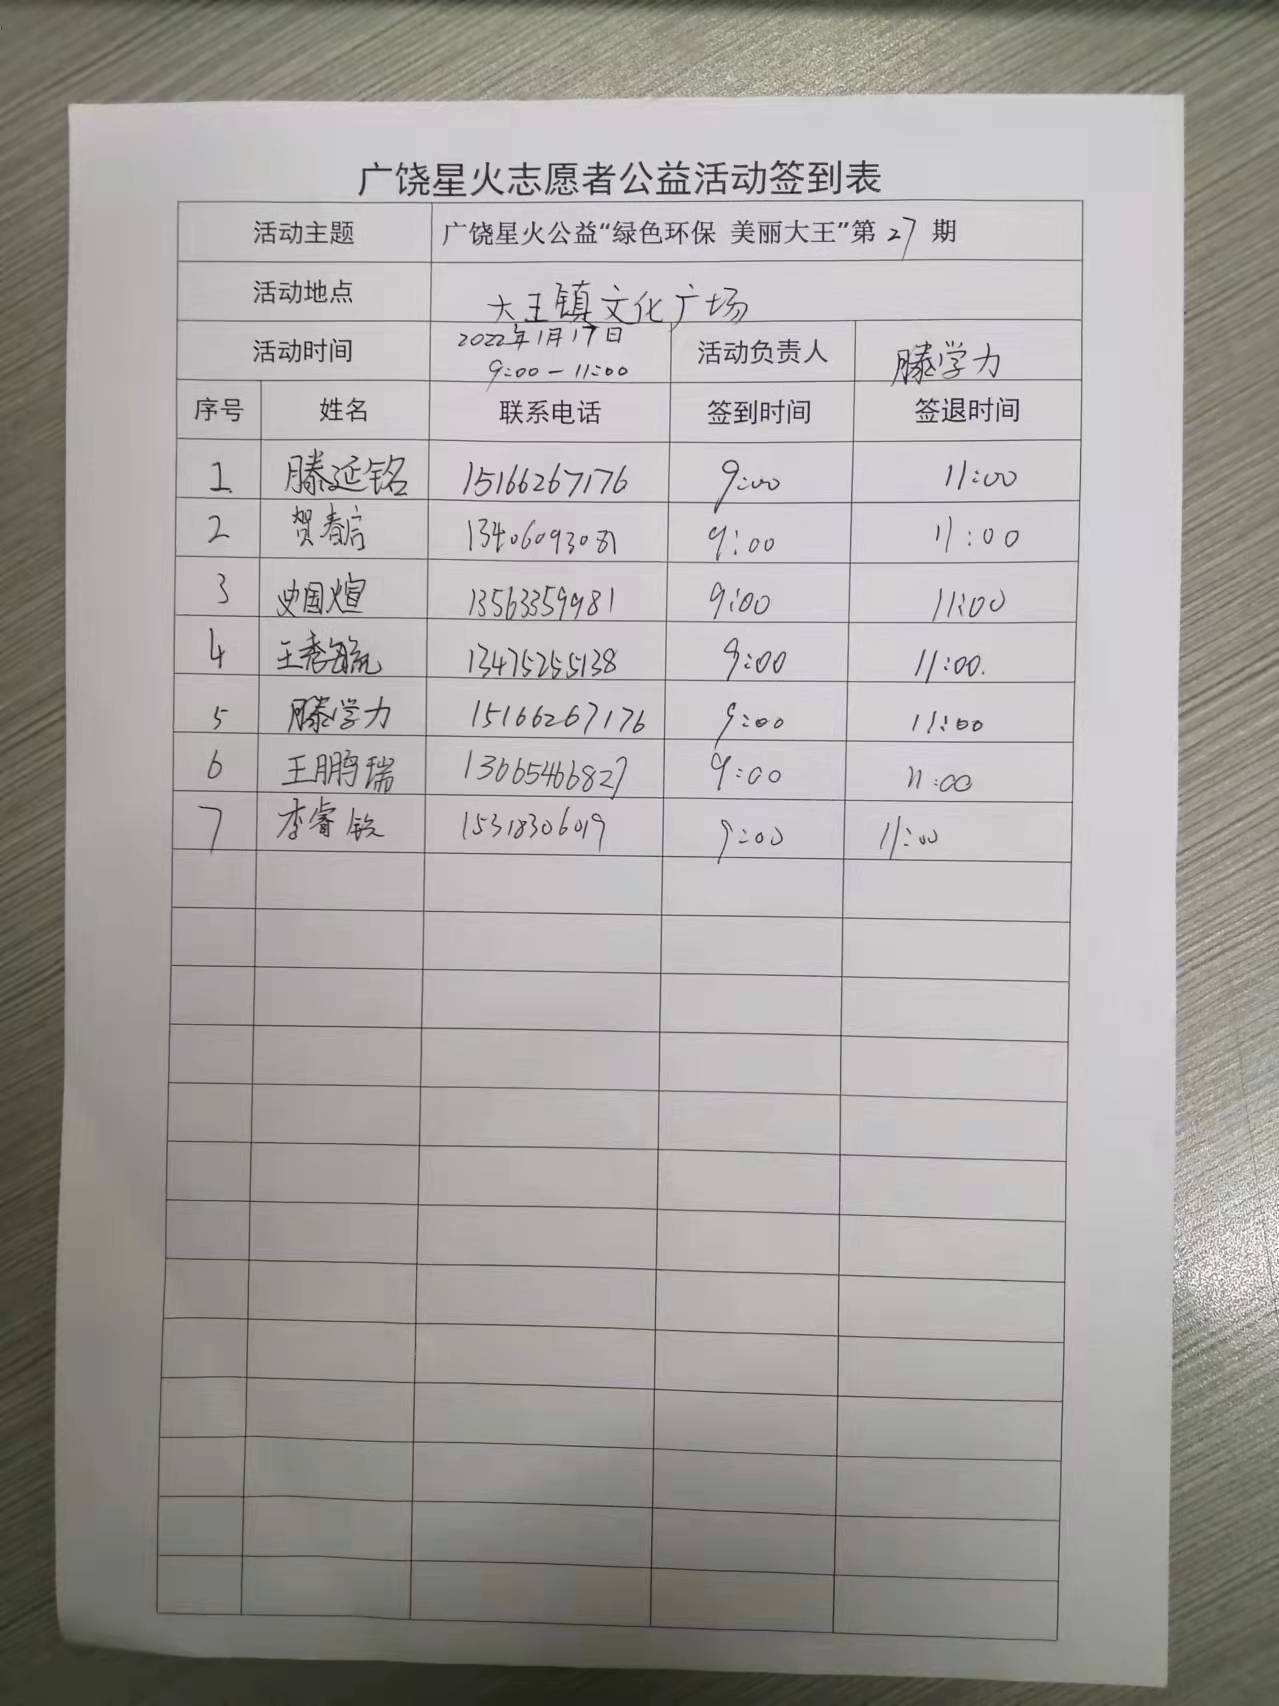 广饶星火志愿者公益活动签到表
活动主题 广饶星火公益“绿色环保 美丽大王”第 27 期
活动地点 大王镇文化广场
活动时间 2022年1月17日 9:00-11:00 活动负责人 滕学力
序号 姓名 联系电话 签到时间 签退时间
1 滕延铭 15166267176 9:00 11:00
2 贺春启 13406093081 9:00 11:00
3 史国煊 13563359981 9:00 11:00
4 王秀毓 13475255138 9:00 11:00.
5 滕学力 15166267176 9:00 11:00
6 王鹏瑞 13665466827 9:00 11:00
7 李睿 15318306019 9:00 11:00